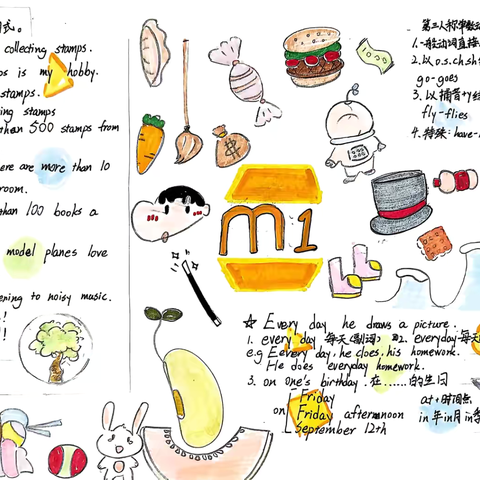 式。
collecting stamps.
is my hobby.
stamps.
stamps
than 500 stamps from
are more than 10
room.
than 100 books a
model planes love
to noisy music.
!
!
m1
第三人称单数
1. 一般动词直接
2. 以 o.s.ch.sh
go-goes
3. 以辅音+y结
fly-flies
4. 特殊: have-
☆ Every day, he draws a picture.
1. every day 每天(副词) 2. everyday-每天
e.g Eevery day, he does his homework.
He does everyday homework.
3. on one's birthday. 在……的生日
on [ Friday
Friday afternnoon
September 12th
at+时间点
in 年 in月 in季